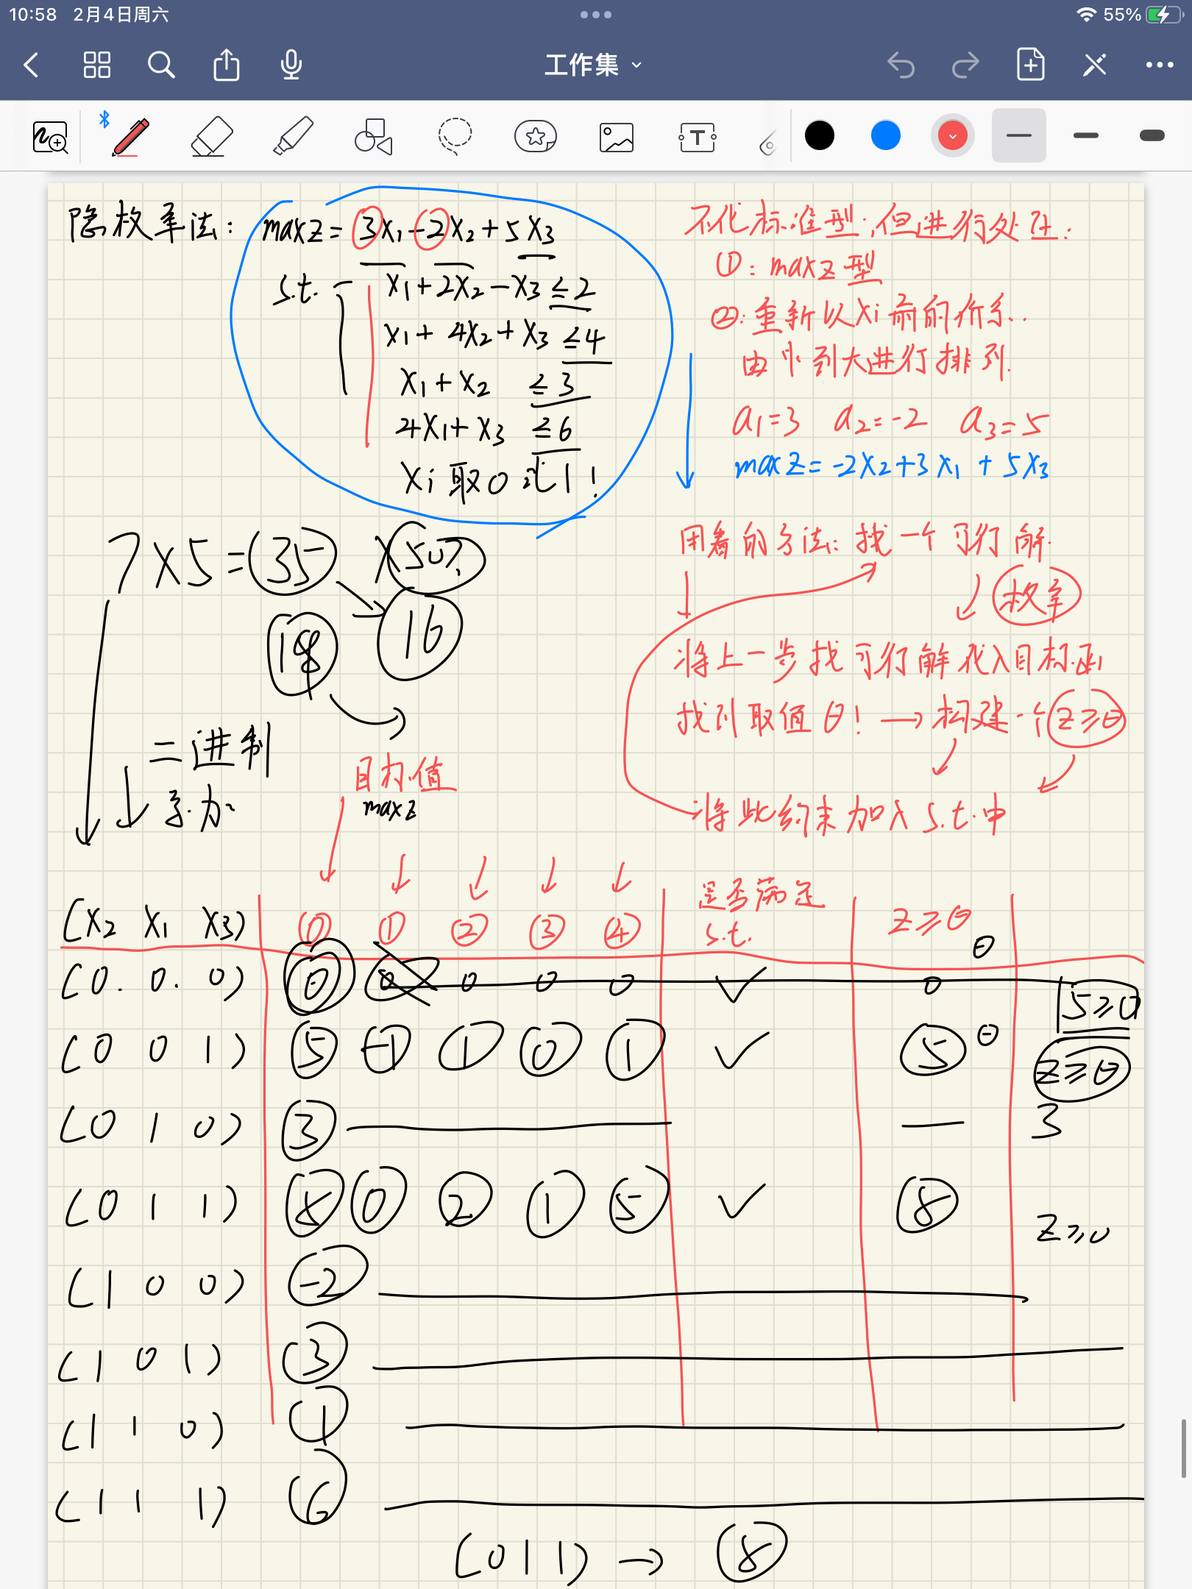 10:58 2月4日周六
55%
工作集
隐枚举法: max Z = 3X₁-2X₂+5X₃
s.t. X₁+2X₂-X₃≤2
X₁+4X₂+X₃≤4
X₁+X₂ ≤3
4X₁+X₃ ≤6
Xi取0或1!
不化标准型,但进行处理:
①: max Z型
②:重新以Xi前的价系..
由小到大进行排列.
a₁=3 a₂=-2 a₃=5
max Z=-2X₂+3X₁+5X₃
7×5=35 ×50%
18 16
二进制
用看的方法:找一个可行解.
枚举
将上一步找可行解代入目标函
找到取值θ! → 构建一个Z≥θ
将此约束加入s.t.中
目标值
max Z
(X₂ X₁ X₃) ⓪ ① ② ③ ④ 是否满足 s.t. Z≥θ
(0. 0. 0) 0 0 0 0 0 ✓ 0 θ 5≥0
(0 0 1) 5 -1 1 0 1 ✓ 5 θ Z≥θ
(0 1 0) 3 — 3
(0 1 1) 8 0 2 1 5 ✓ 8 Z≥0
(1 0 0) -2
(1 0 1) 3
(1 1 0) 1
(1 1 1) 6
(0 1 1) → 8